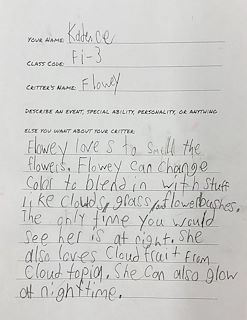 YOUR NAME: Kadence
CLASS CODE: Fi-3
CRITTER'S NAME: Flowey
DESCRIBE AN EVENT, SPECIAL ABILITY, PERSONALITY, OR ANYTHING
ELSE YOU WANT ABOUT YOUR CRITTER:
Flowey loves to smell the
flowers. Flowey can change
color to blend in with stuff
like clouds, grass, or flowerbushes.
The only time you would
see her is at night. She
also loves cloud fruit from
Cloud topia. She can also glow
at nighttime.